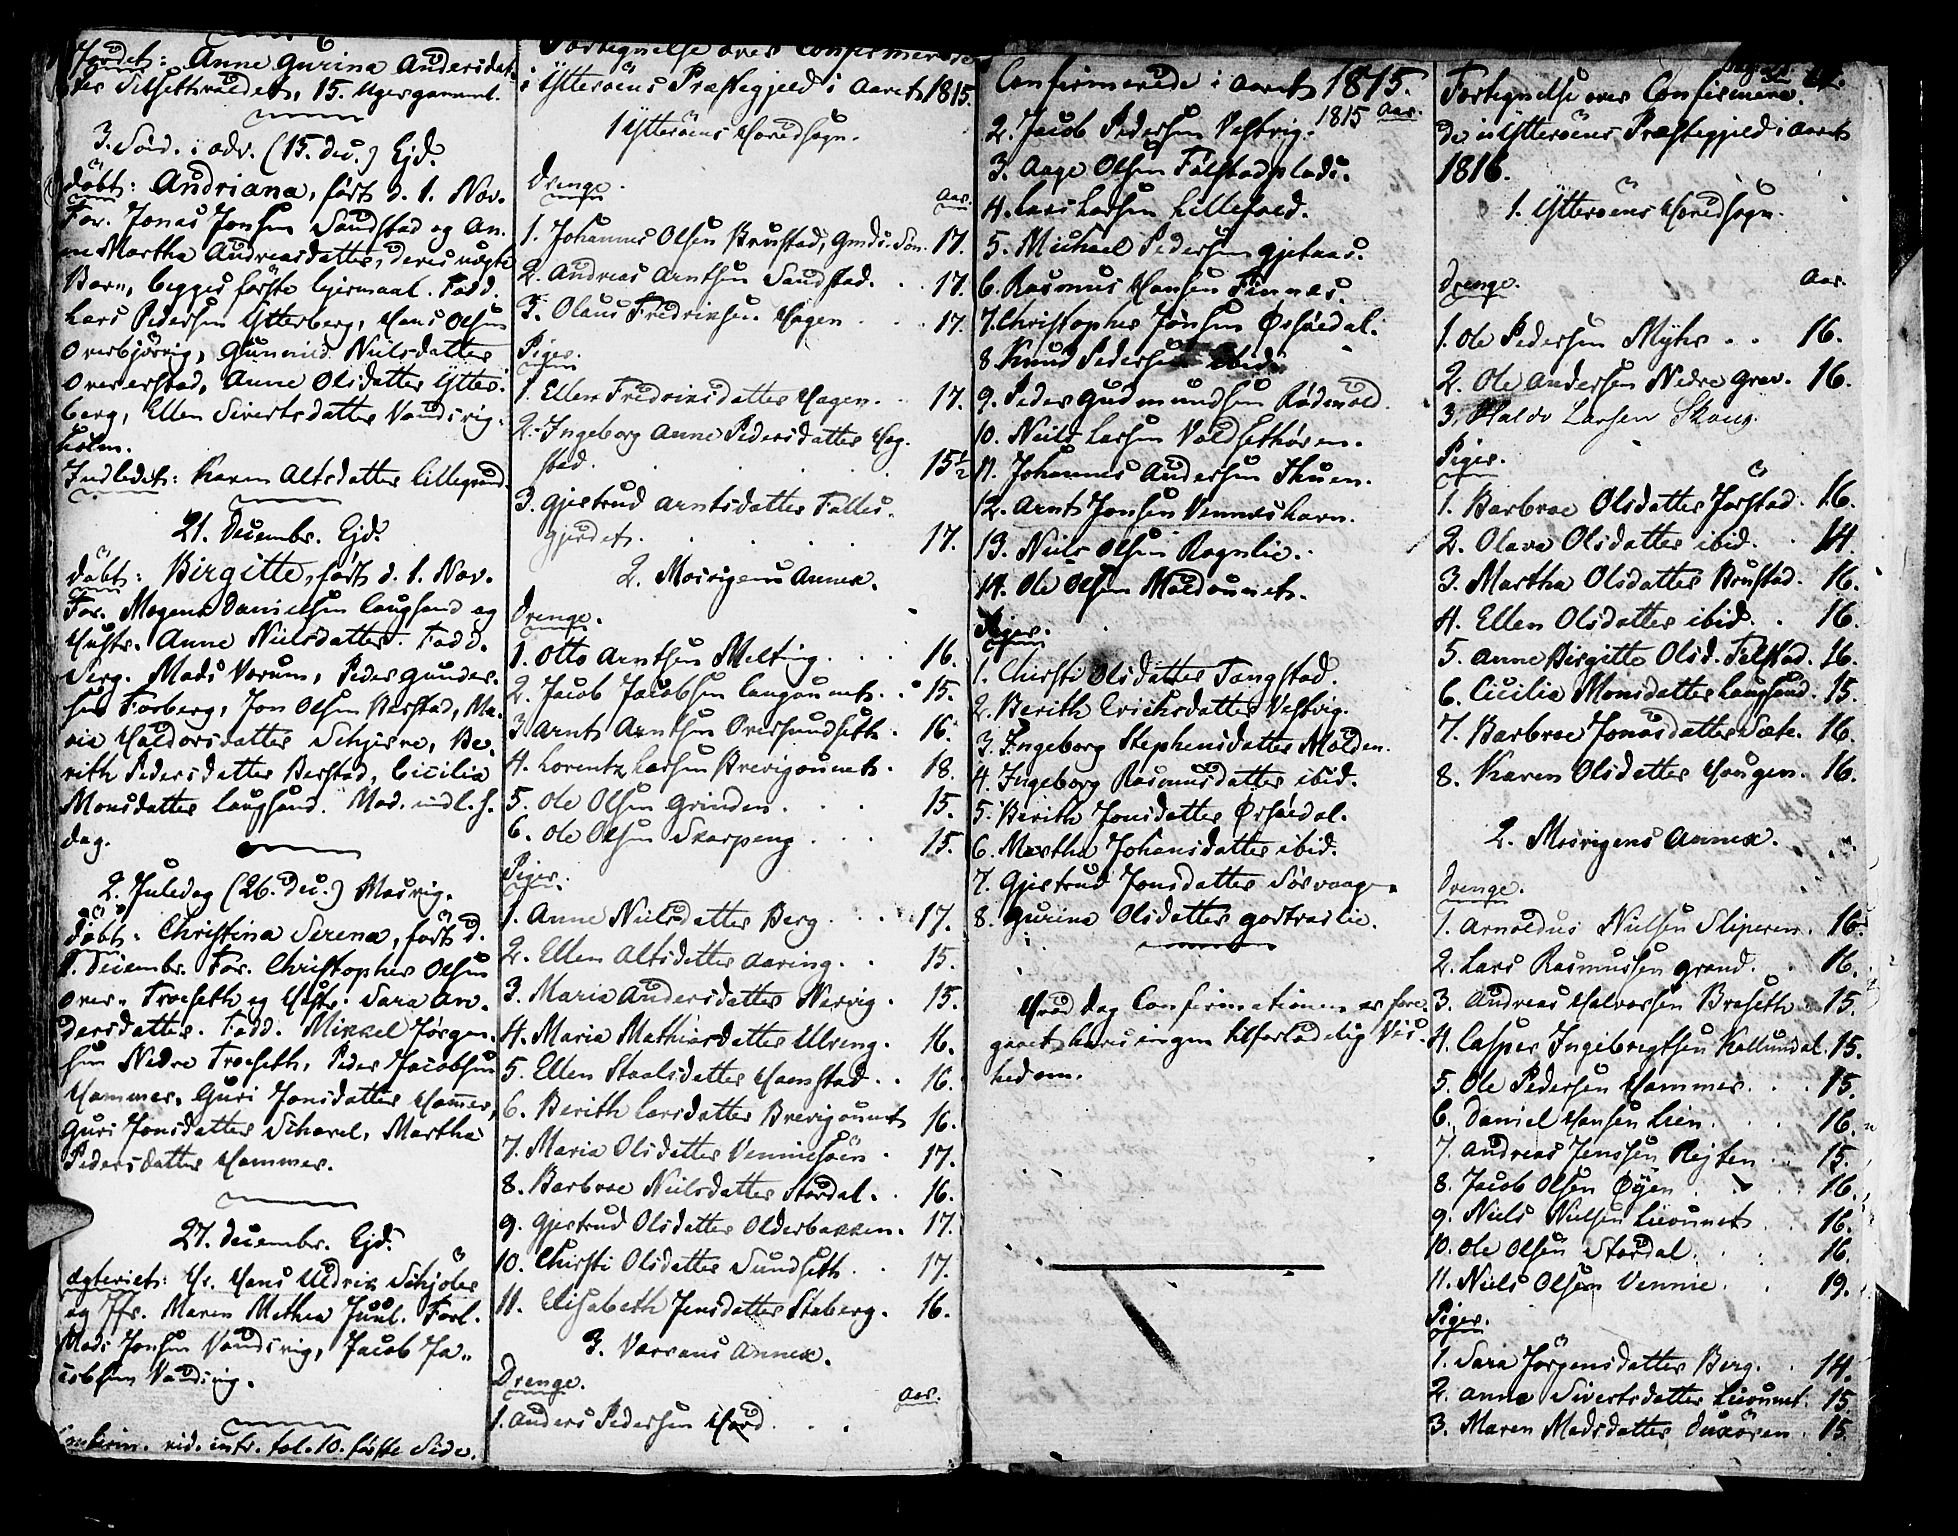 Jordet: Anne Gurina Andersdat-
ter Silsethvaldet, 15. Uger gammel.
3. Sønd. i adv. (15. dec.) Ejd.
döbt: Andriana, född d. 1. Nov.
For. Jonas Jonsen Sundstad og An-
ne Martha Andreasdatter, deres uægte
Barn, begges förste Lejermaal. Fadd.
Lars Pedersen Ytterberg, Hans Olsen
Overbjörvig, Gunnild Nielsdatter
Overerstad, Anne Olsdatter Ytter-
berg, Ellen Sivertsdatter Vandvig-
holm.
Indledet: Karen Altsdatter Lillegrund.
21. Decembr. Ejd.
döbt: Birgitte, född d. 1. Nov.
For. Mogens Danielsen Laugsand og
Hustr. Anne Nielsdatter. Fadd.
Serg. Mads Vorum, Peder Gunder-
sen Forberg, Jon Olsen Berstad, Ma-
rie Haldorsdatter Schjerve, Be-
rith Pedersdatter Berstad, Cicilia
Monsdatter Laugsand. Mod. indl. s.
dag.
2. Juledag (26. Dec.) Mosvig.
döbt: Christina Serena, född d.
1. Decembr. For. Christopher Olsen
Over-Troeseth og Hustr. Sara An-
dersdatter. Fadd. Mikael Jörgen-
sen Nedre Troeseth, Peder Jacobsen
Hammer, Guri Jonsdatter Hammer,
Guri Jonsdatter Scharel, Martha
Pedersdatter Hammer.
27. Decembr. Ejd.
Ægteviet: Hr. Hans Uldrik Schjöler
og Jfr. Maren Methea Juul. Forl.
Mads Jonsen Vandsvig, Jacob Ja-
cobsen Vandsvig.
vid. intr. fol. 10. förste Side.
Fortegnelse over Confirmerede
i Ytteröens Præstegjeld i Aaret 1815.
1 Ytteröens Hovedsogn.
Drenge. Aar.
1. Johannes Olsen Brustad, Gmds. Sön. 17.
2. Andreas Arntsen Sundstad. 17.
3. Olaus Fredriksen Hagen. 17.
Piger.
1. Ellen Fredriksdatter Hagen. 17.
2. Ingeborg Anne Pedersdatter Hog-
stad. 15½
3. Gjertrud Arntsdatter Falles-
gjerdet. 17.
2. Mosvigens Annex.
Drenge.
1. Otto Arntsen Melting. 16.
2. Jacob Jacobsen Langounet. 15.
3. Arnt Arntsen Oversundseth. 16.
4. Lorentz Larsen Brevigounet. 18.
5. Ole Olsen Grinden. 15.
6. Ole Olsen Skarpeng. 15.
Piger.
1. Anne Nielsdatter Berg. 17.
2. Ellen Altsdatter Aaring. 15.
3. Maria Andersdatter Nervig. 15.
4. Maria Mathiasdatter Ulveng. 16.
5. Ellen Staalsdatter Hamstad. 16.
6. Berith Larsdatter Brevigounet 16.
7. Maria Olsdatter Vennesöen. 17.
8. Barbroe Nielsdatter Stordal. 16.
9. Gjertrud Olsdatter Olderbakken. 17.
10. Chirsti Olsdatter Sundseth. 17.
11. Elisabeth Jensdatter Staberg. 16.
3. Værrans Annex.
Drenge. Aar.
1. Anders Pedersen Hord.
Confirmerede i Aaret 1815.
1815 Aar.
2. Jacob Pedersen Vestvig.
3. Aage Olsen Fölstadplads.
4. Lars Larsen Lillefold.
5. Michael Pedersen Gjetaas.
6. Rasmus Hansen Finnes.
7. Christopher Jonsen Ørsöedal.
8. Knud Pedersen ibid.
9. Peder Gudmundsen Rödevold.
10. Niels Larsen Voldsethören.
11. Johannes Andersen Skuen.
12. Arnt Jonsen Venneshavn.
13. Niels Olsen Ragnlie.
14. Ole Olsen Moldounet.
Piger.
1. Chirsti Olsdatter Tangstad.
2. Berith Erichsdatter Vestvig.
3. Ingeborg Stephensdatter Molden.
4. Ingeborg Rasmusdatter ibid.
5. Berith Jonsdatter Ørsöedal.
6. Martha Johansdatter ibid.
7. Gjertrud Jonsdatter Sörvaage.
8. Gurina Olsdatter Gortraslie.
Hvad dag Confirmationen er fore-
gaaet haves ingen tilforladelig Vis-
hed om.
Fortegnelse over Confirmere-
de i Ytteröens Præstegjeld i Aaret
1816.
1. Ytteröens Hovedsogn.
Drenge. Aar.
1. Ole Pedersen Myhr. 16.
2. Ole Andersen Nedre Grav. 16.
3. Haldo Larsen Skaug.
Piger.
1. Barbroe Olsdatter Jörstad. 16.
2. Olava Olsdatter ibid. 14.
3. Martha Olsdatter Brustad. 16.
4. Ellen Olsdatter ibid. 16.
5. Anne Birgitte Olsd. Felstad. 16.
6. Cicilia Monsdatter Laugsand. 15.
7. Barbroe Jonasdatter Sæte. 16.
8. Karen Olsdatter Haugen. 16.
2. Mosvigens Annex.
Drenge.
1. Arnoldus Nielsen Sliperen. 16.
2. Lars Rasmussen Grand. 16.
3. Andreas Halvorsen Braseth 15.
4. Casper Ingebregtsen Kallundal. 15.
5. Ole Pedersen Hammer. 15.
6. Daniel Hansen Lien. 16.
7. Andreas Jenssen Rejten. 15.
8. Jacob Olsen Øyen. 16.
9. Niels Nielsen Lieounet. 16.
10. Ole Olsen Stordal. 16.
11. Niels Olsen Vennie. 19.
Piger.
1. Sara Jörgensdatter Berg. 14.
2. Anna Sivertsdatter Lieounet. 15.
3. Maren Madsdatter Duxören. 15.